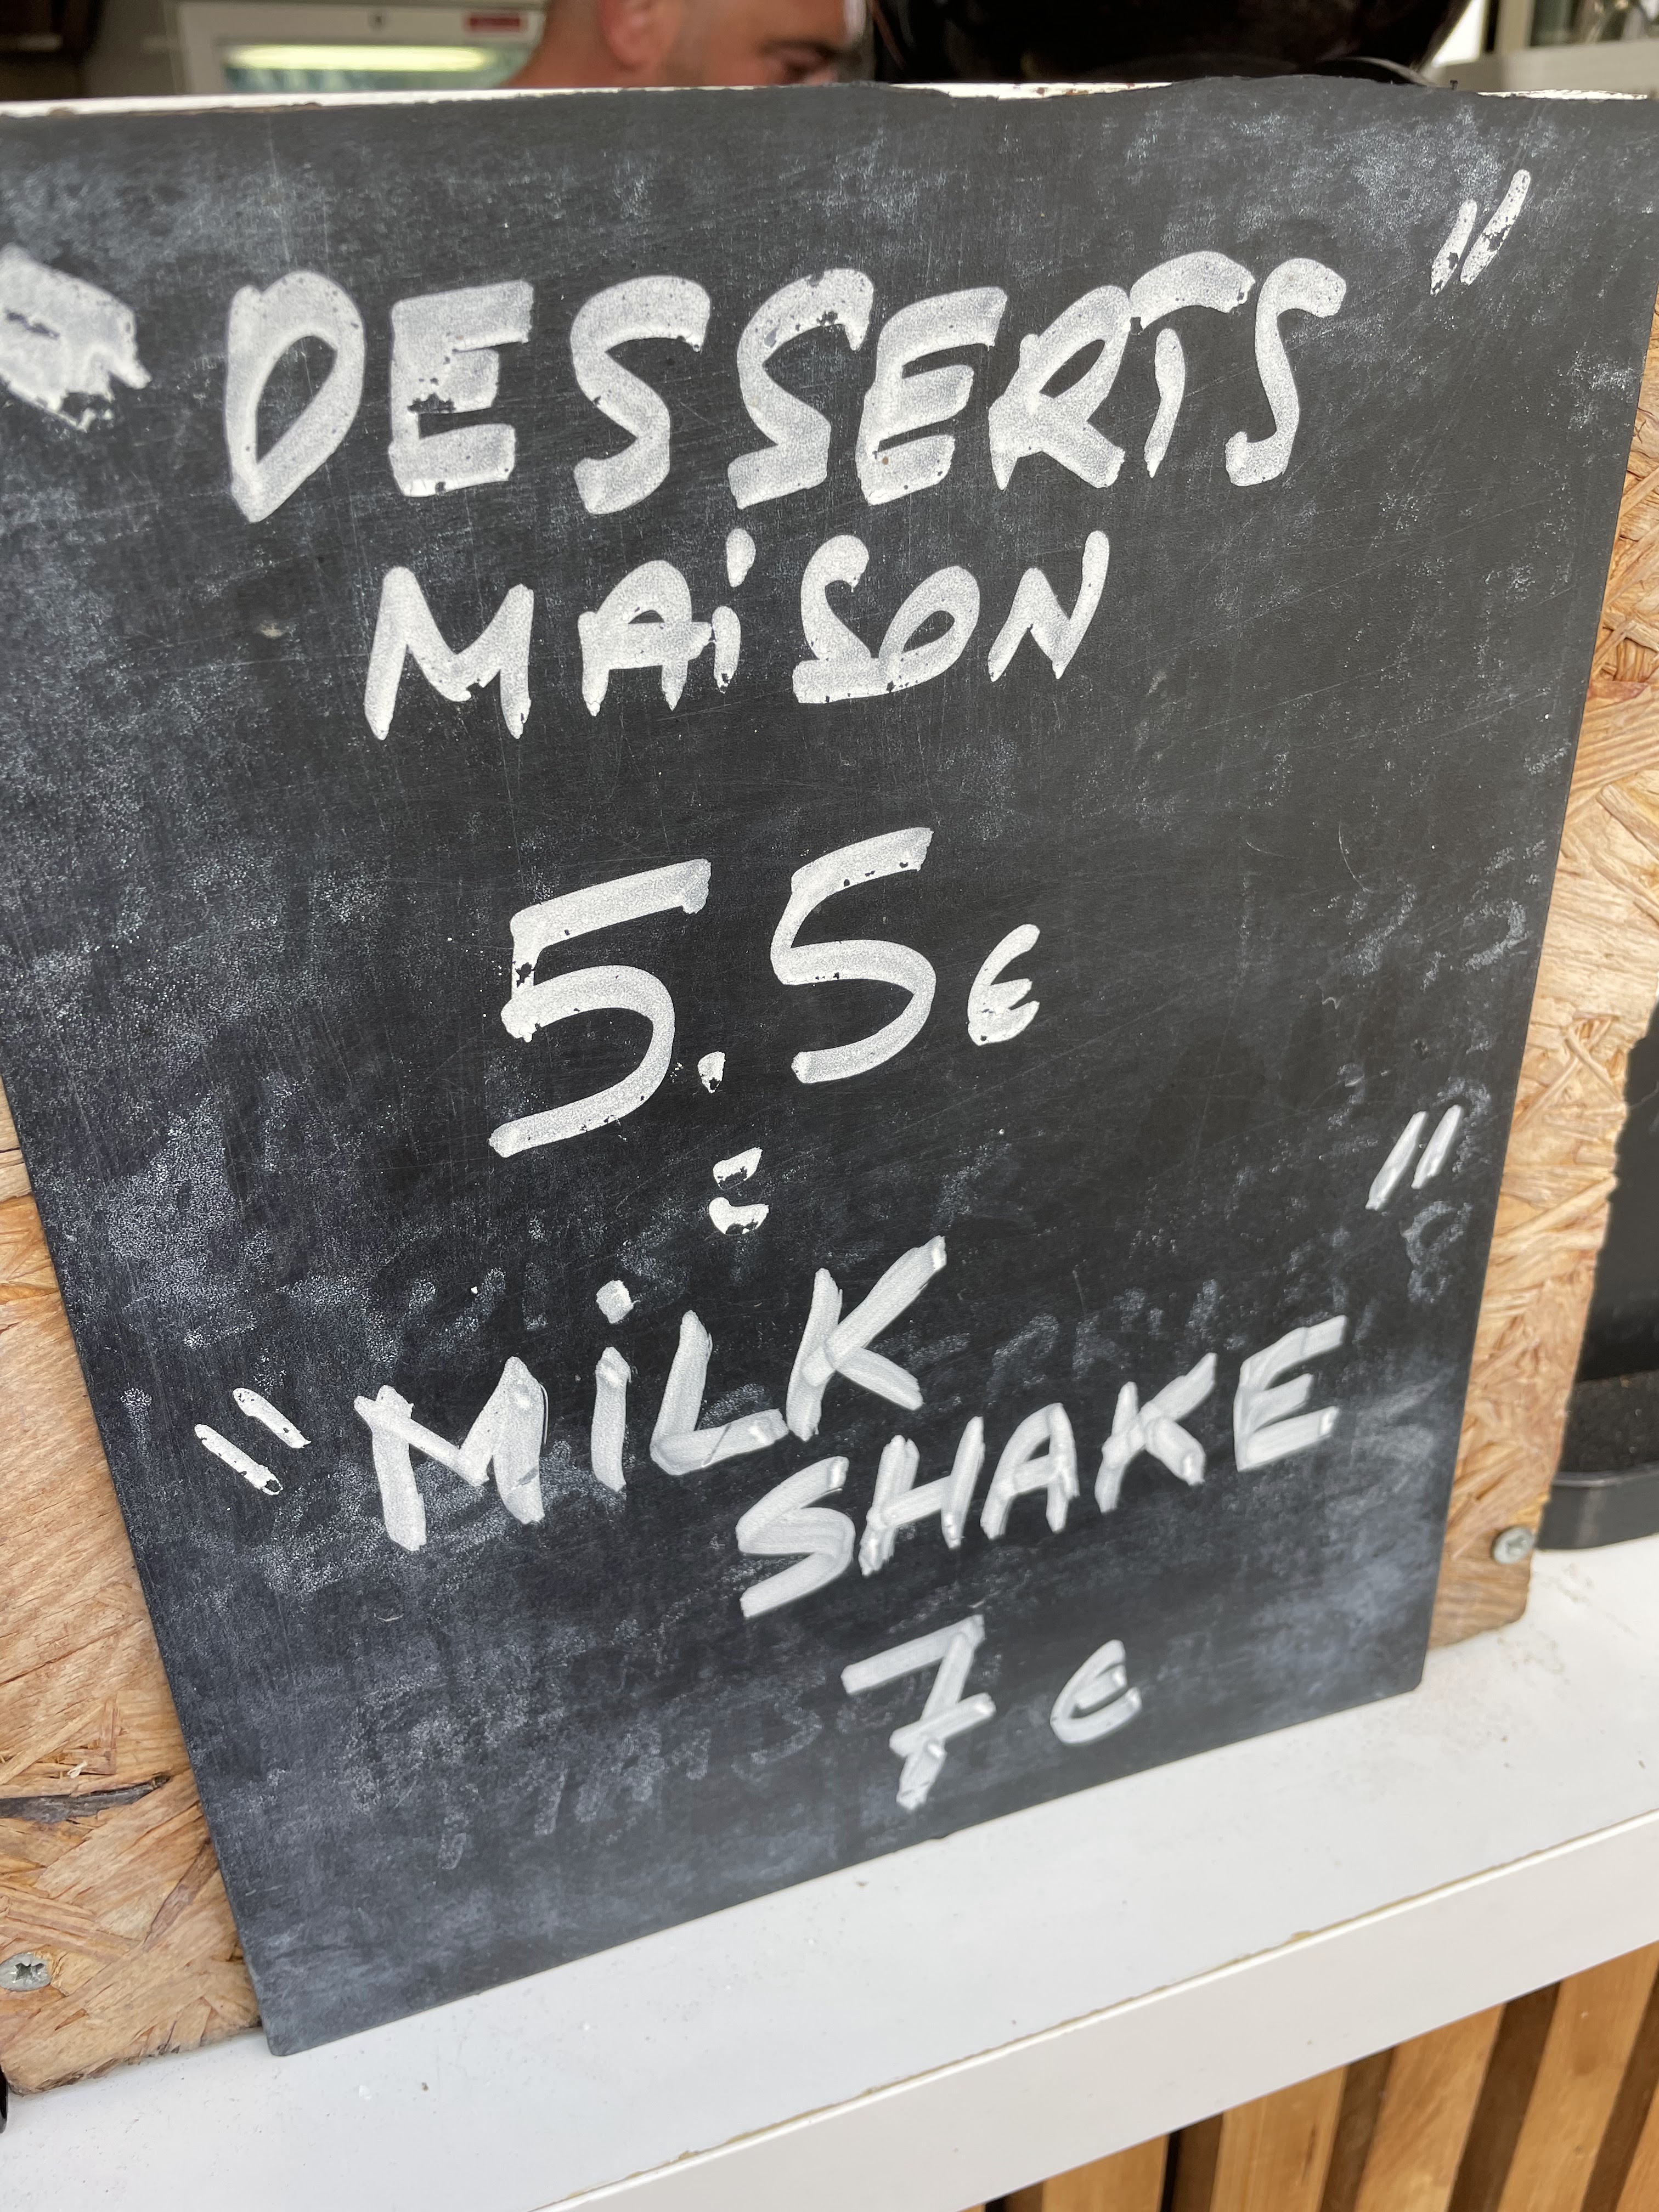 "DESSERTS"
MAiSON
5.5€
"MiLK
SHAKE"
7€